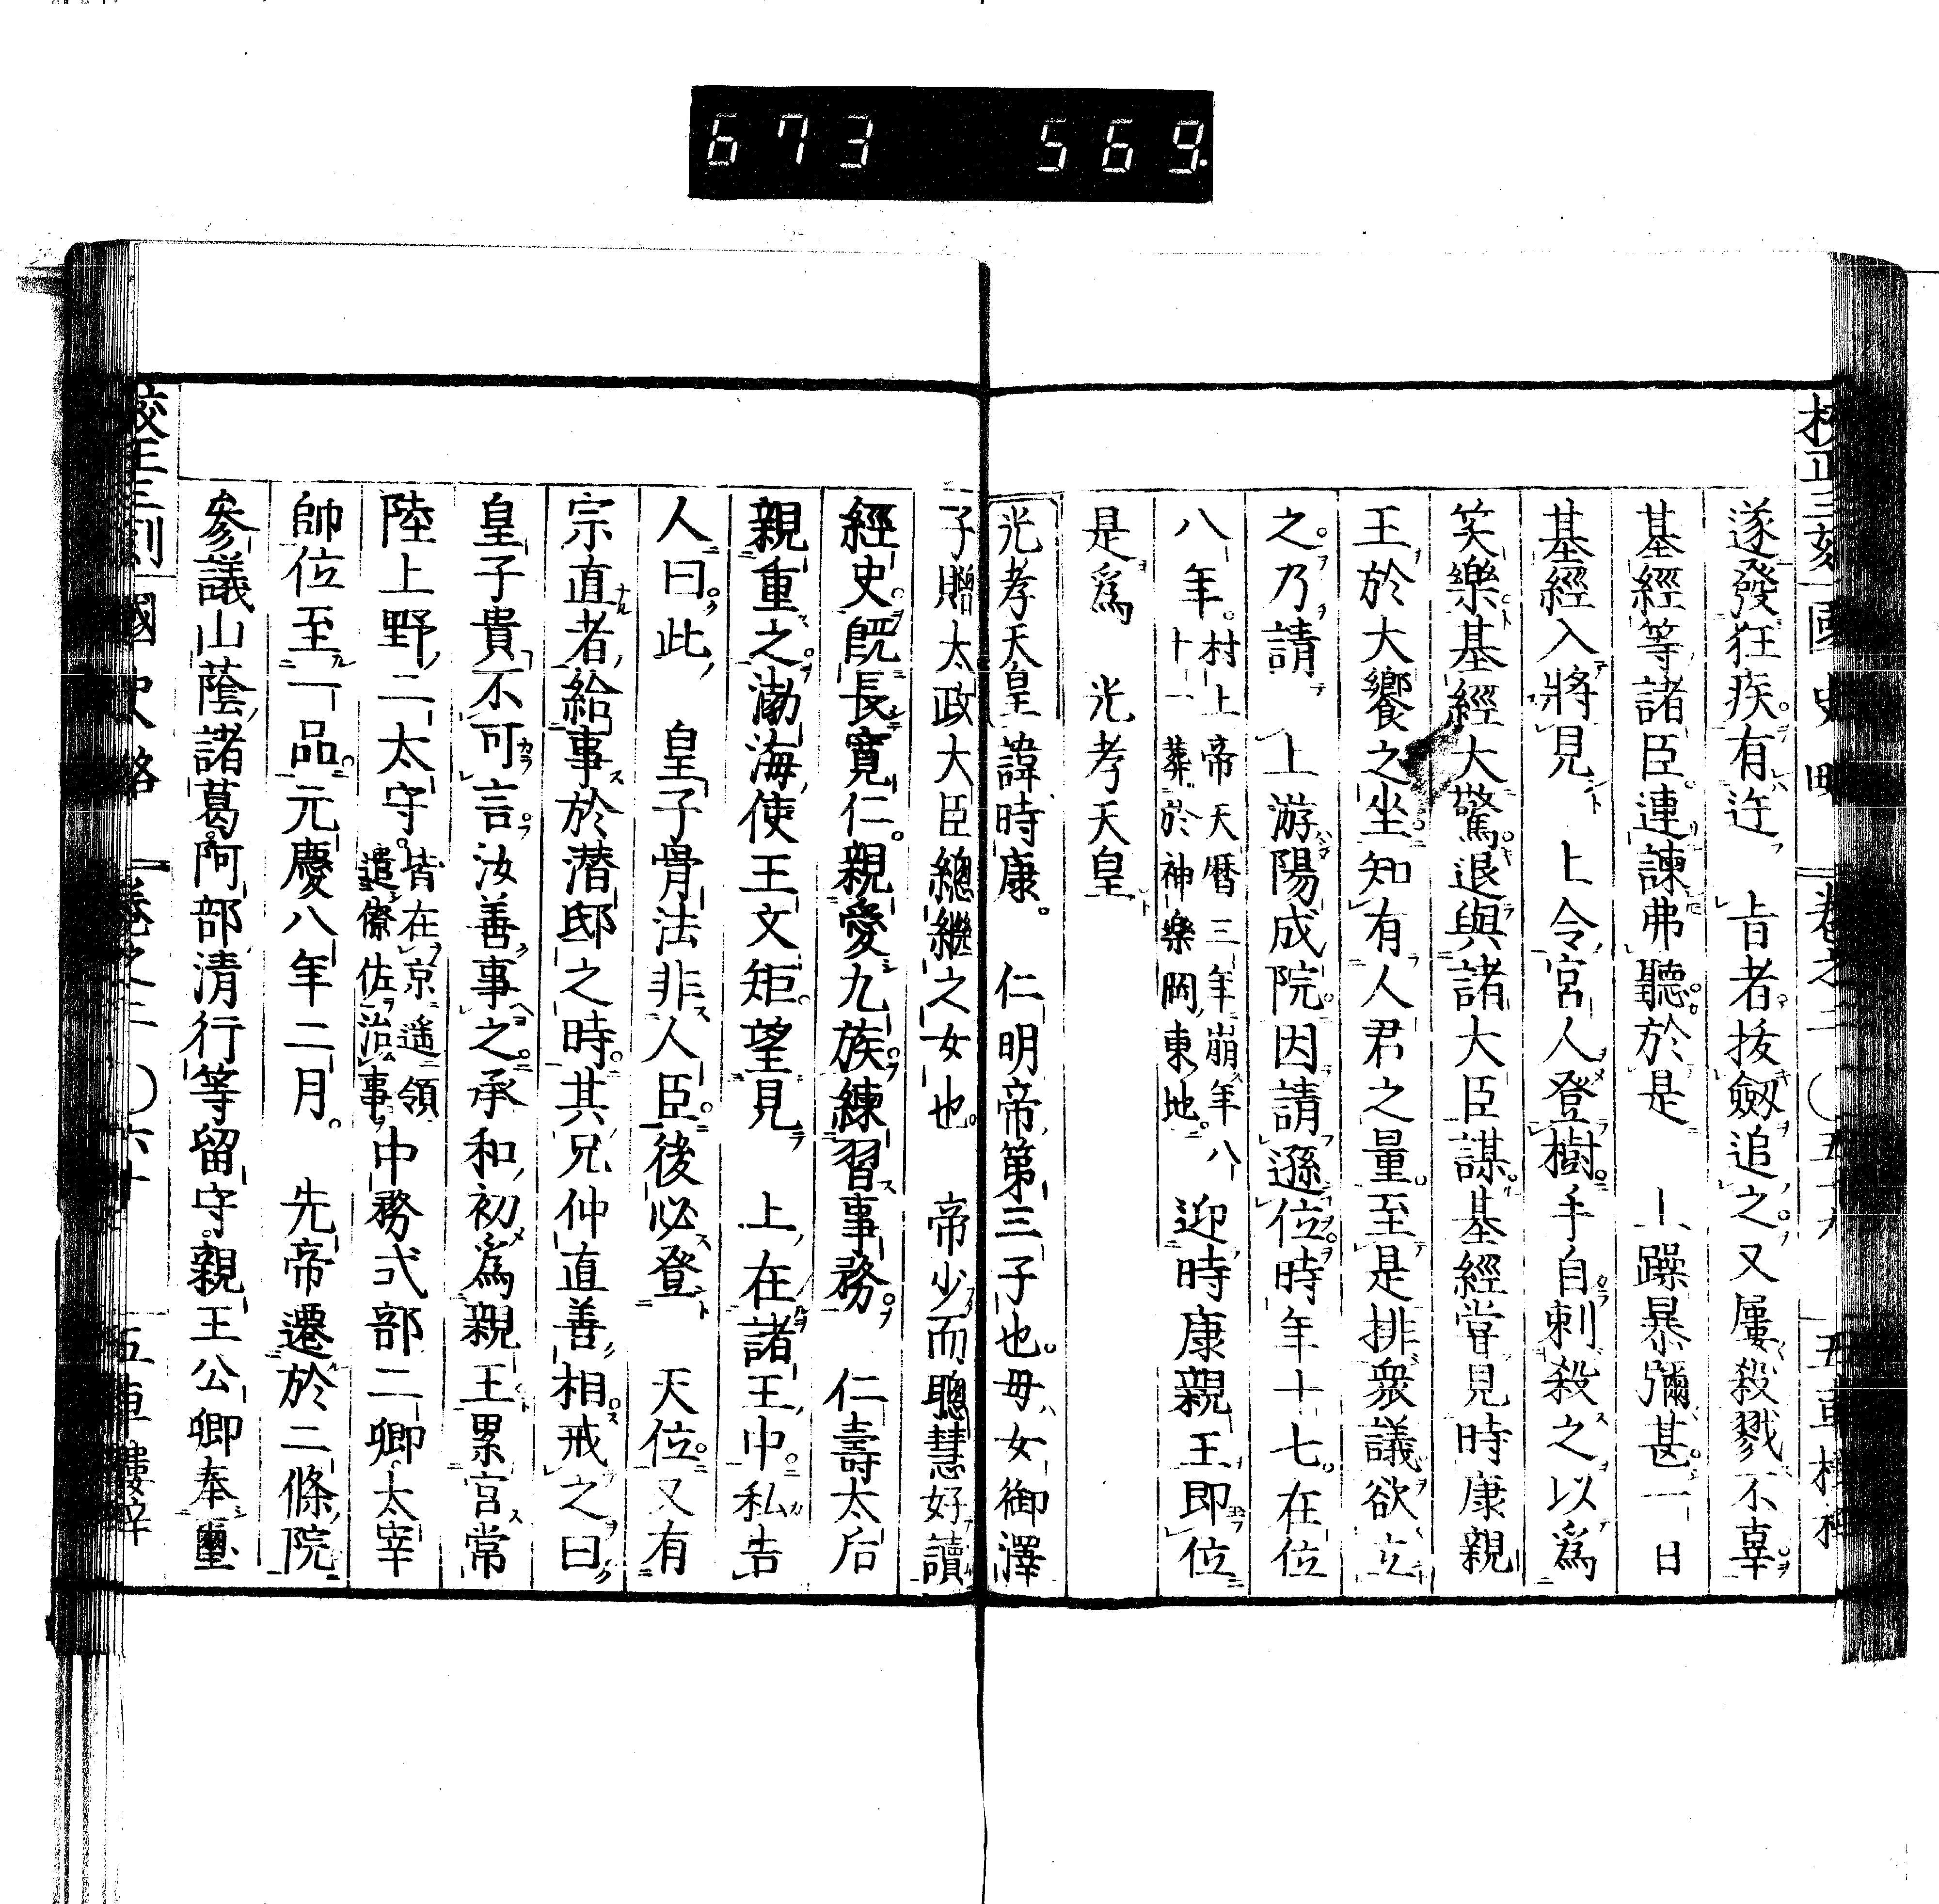 673 569
遂發狂疾有迕 旨者拔劔追之又屢殺戮不辜
基經等諸臣連諫弗聽於是 上躁暴彌甚一日
基經入將見 上令宮人登樹手自刺殺之以爲
笑樂基經大驚退與諸大臣謀基經嘗見時康親
王於大饗之坐知有人君之量至是排衆議欲立
之乃請 上游陽成院因請遜位時年十七在位
八年村上帝天曆三年崩年八
十一葬於神樂岡東地迎時康親王即位
是爲 光孝天皇
光孝天皇諱時康 仁明帝第三子也母女御澤
子贈太政大臣總繼之女也 帝少而聰慧好讀
經史既長寬仁親愛九族練習事務 仁壽太后
親重之渤海使王文矩望見 上在諸王中私告
人曰此 皇子骨法非人臣後必登 天位又有
宗直者給事於潛邸之時其兄仲直善相戒之曰
皇子貴不可言汝善事之承和初爲親王累官常
陸上野二太守皆在京遥領
遣僚佐治事中務式部二卿太宰
帥位至一品元慶八年二月 先帝遷於二條院
參議山蔭諸葛阿部清行等留守親王公卿奉璽
國史略 卷之二 〇六十